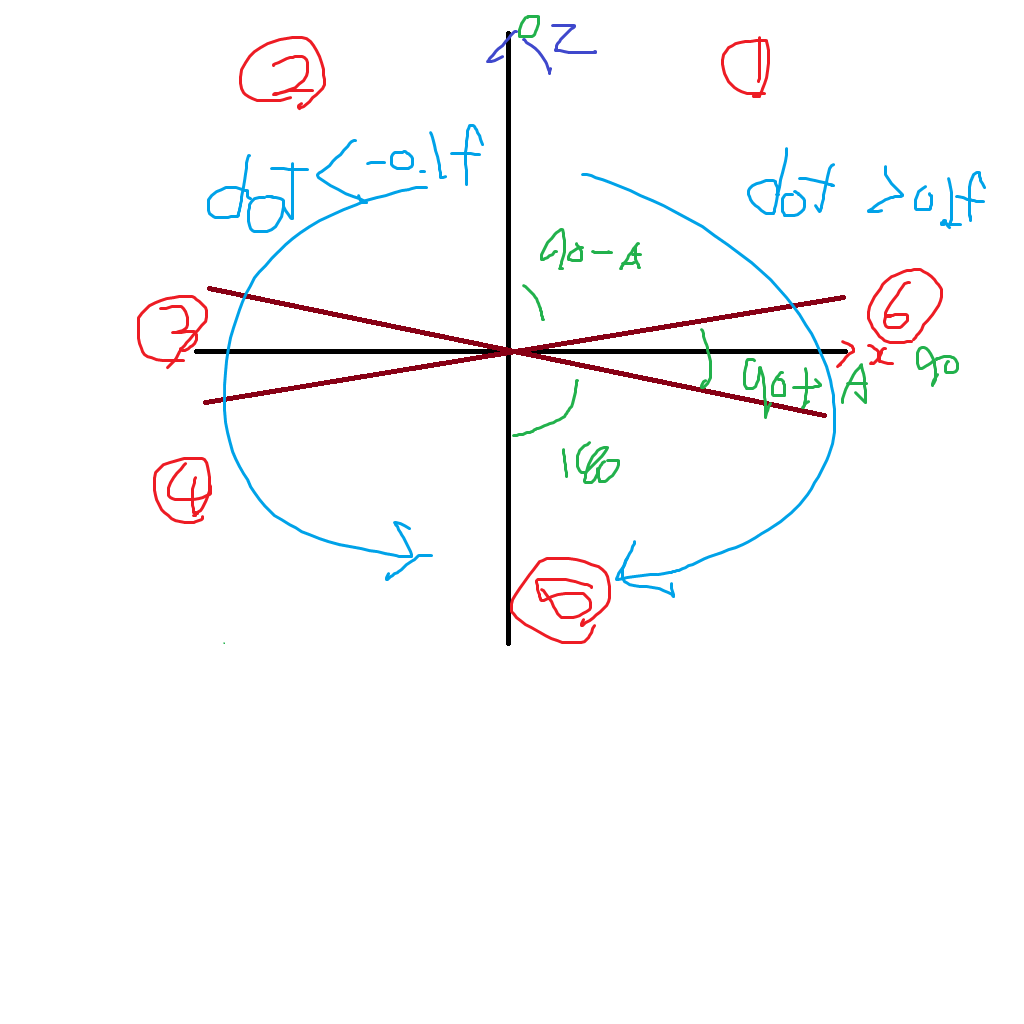 0 Z
2
1
dot < -0.1f
dot > 0.1f
90 - A
3
6
x 90
90 + A
4
180
5